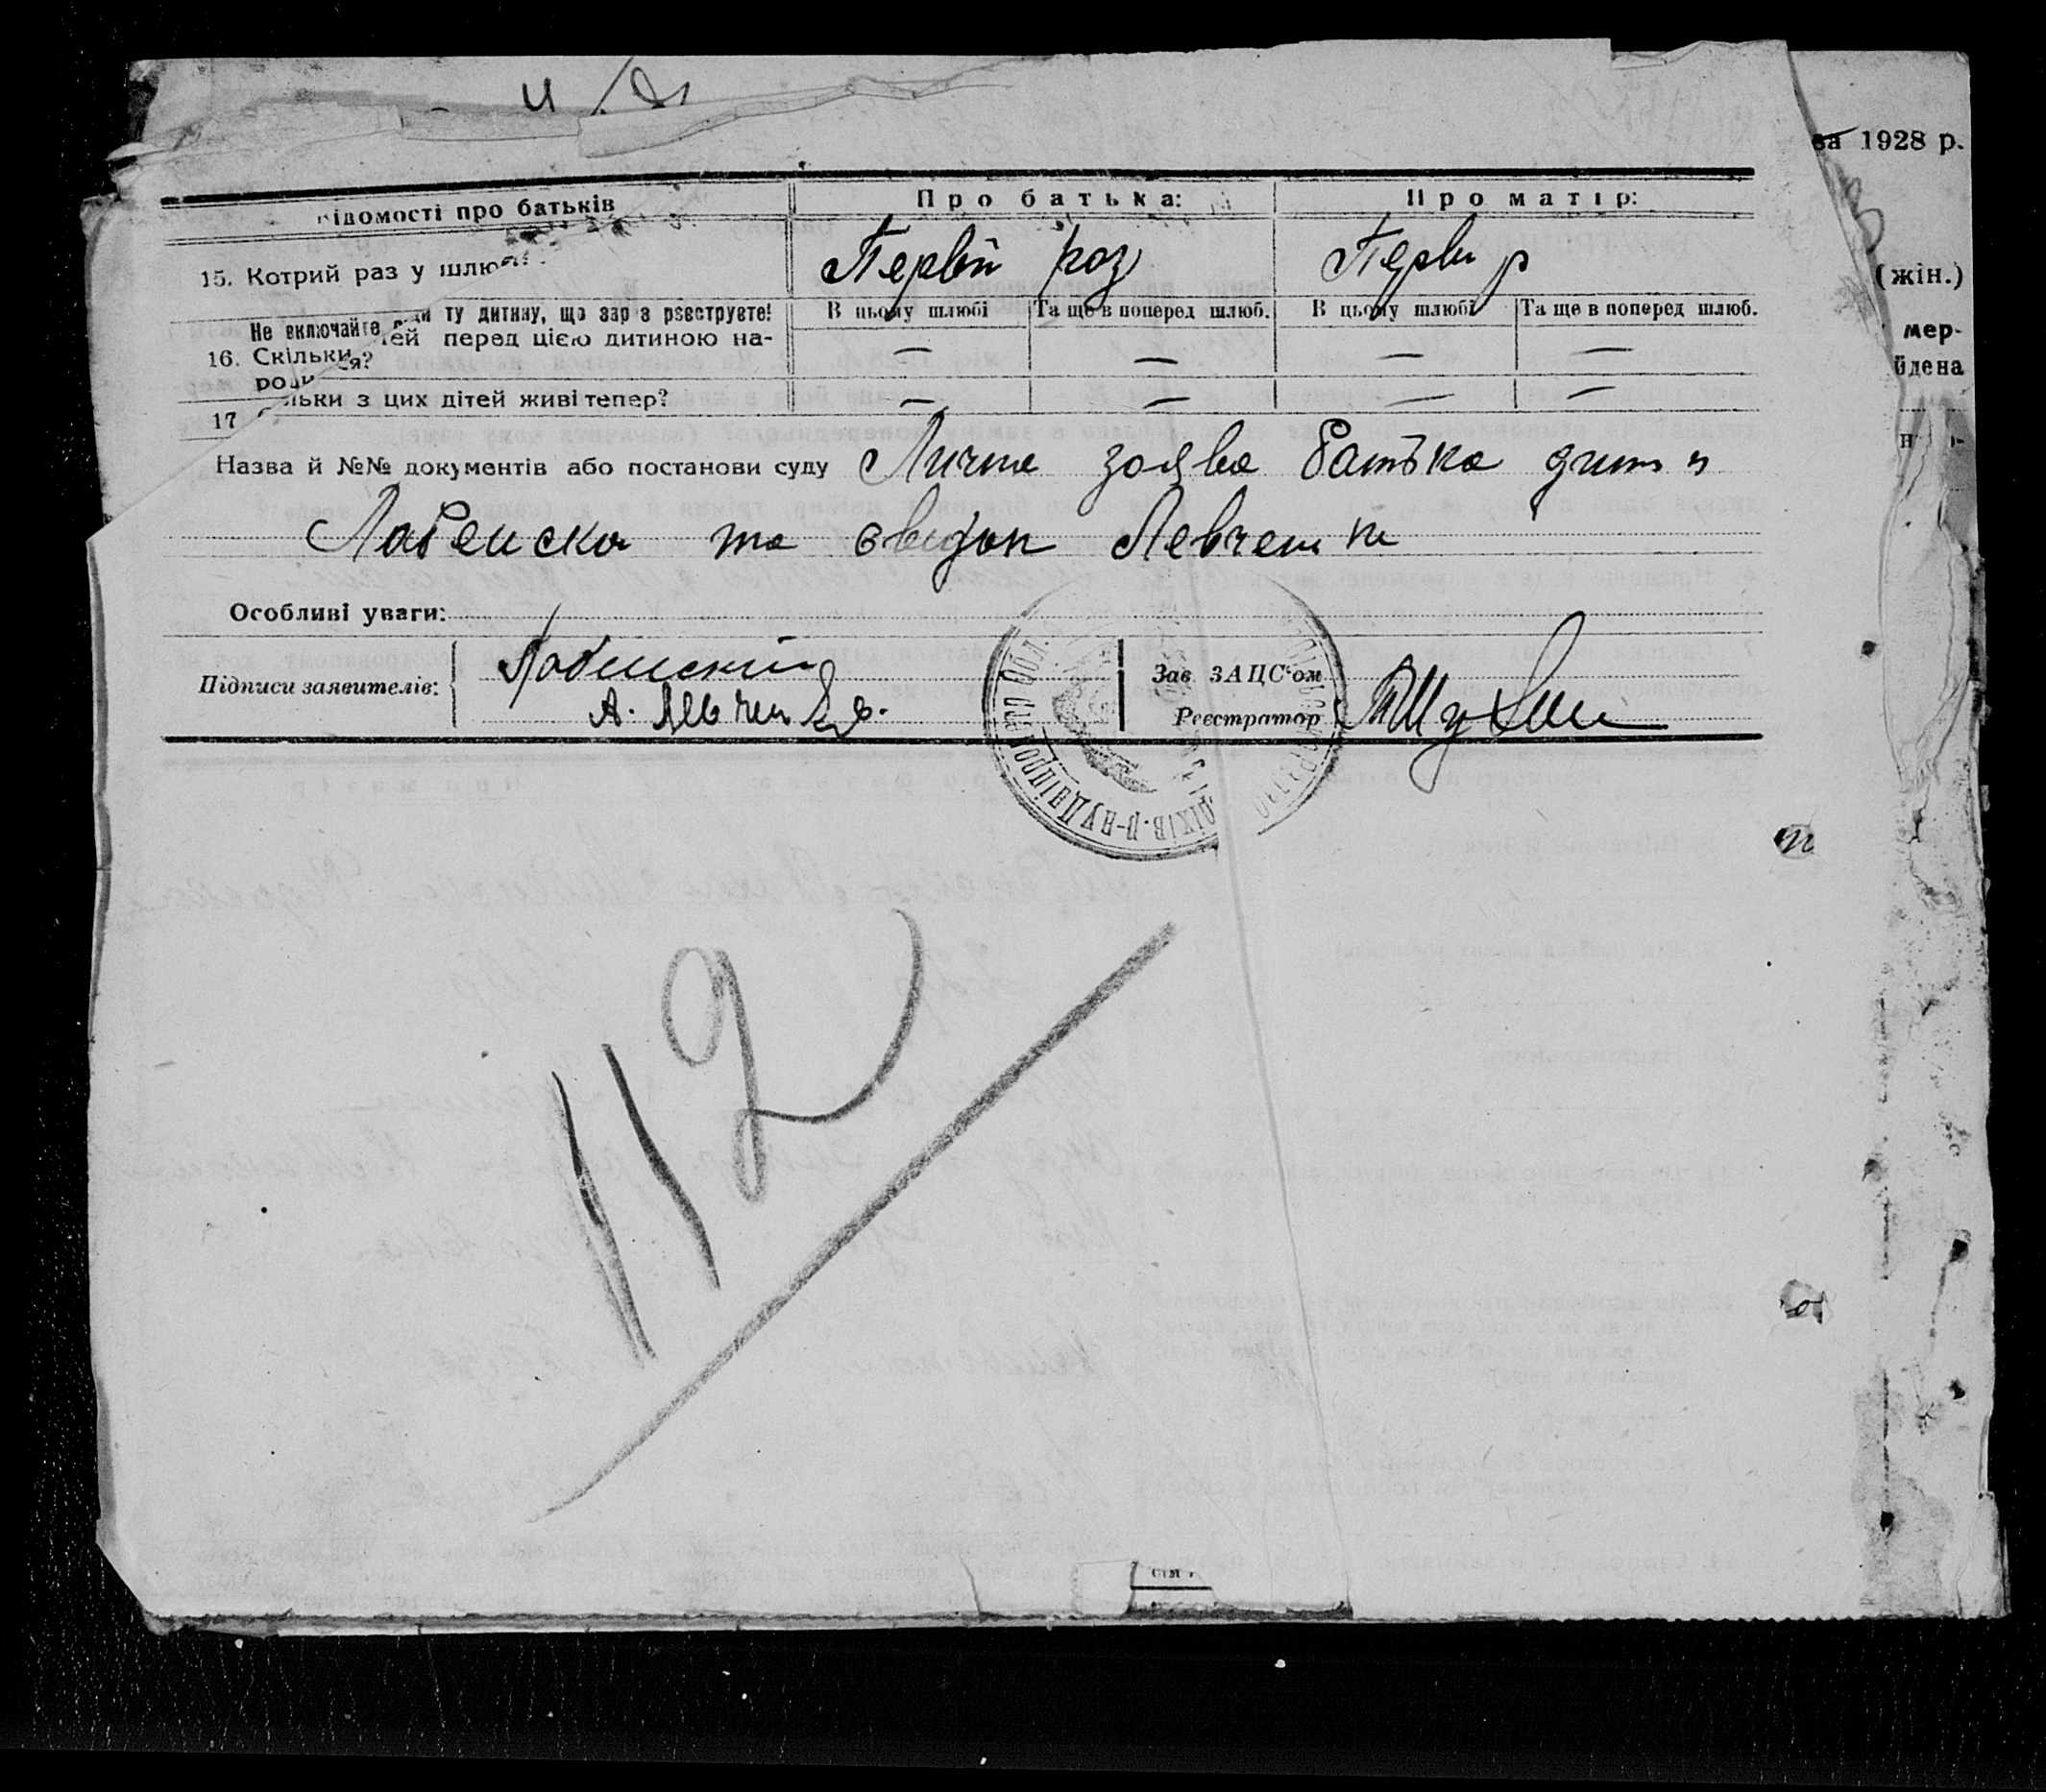 за 1928 р.
відомості про батьків
Про батька:
Про матір:
15. Котрий раз у шлюбі
Первій раз
Перви р
(жін.)
Не включайте сюди ту дитину, що зараз реєструєте!
16. Скільки дітей перед цією дитиною на-
родилося?
В цьому шлюбі
Та ще в поперед шлюб.
В цьому шлюбі
Та ще в поперед шлюб.
— — — —
мер-
йдена
17 Скільки з цих дітей живі тепер?
— — — —
Назва й №№ документів або постанови суду Лична заява батька дитини
Лабенска та свідок Левченко
Особливі уваги:
Підписи заявителів:
Лабенский
А. Левченко.
Зав ЗАЦС'ом
Реєстратор
112